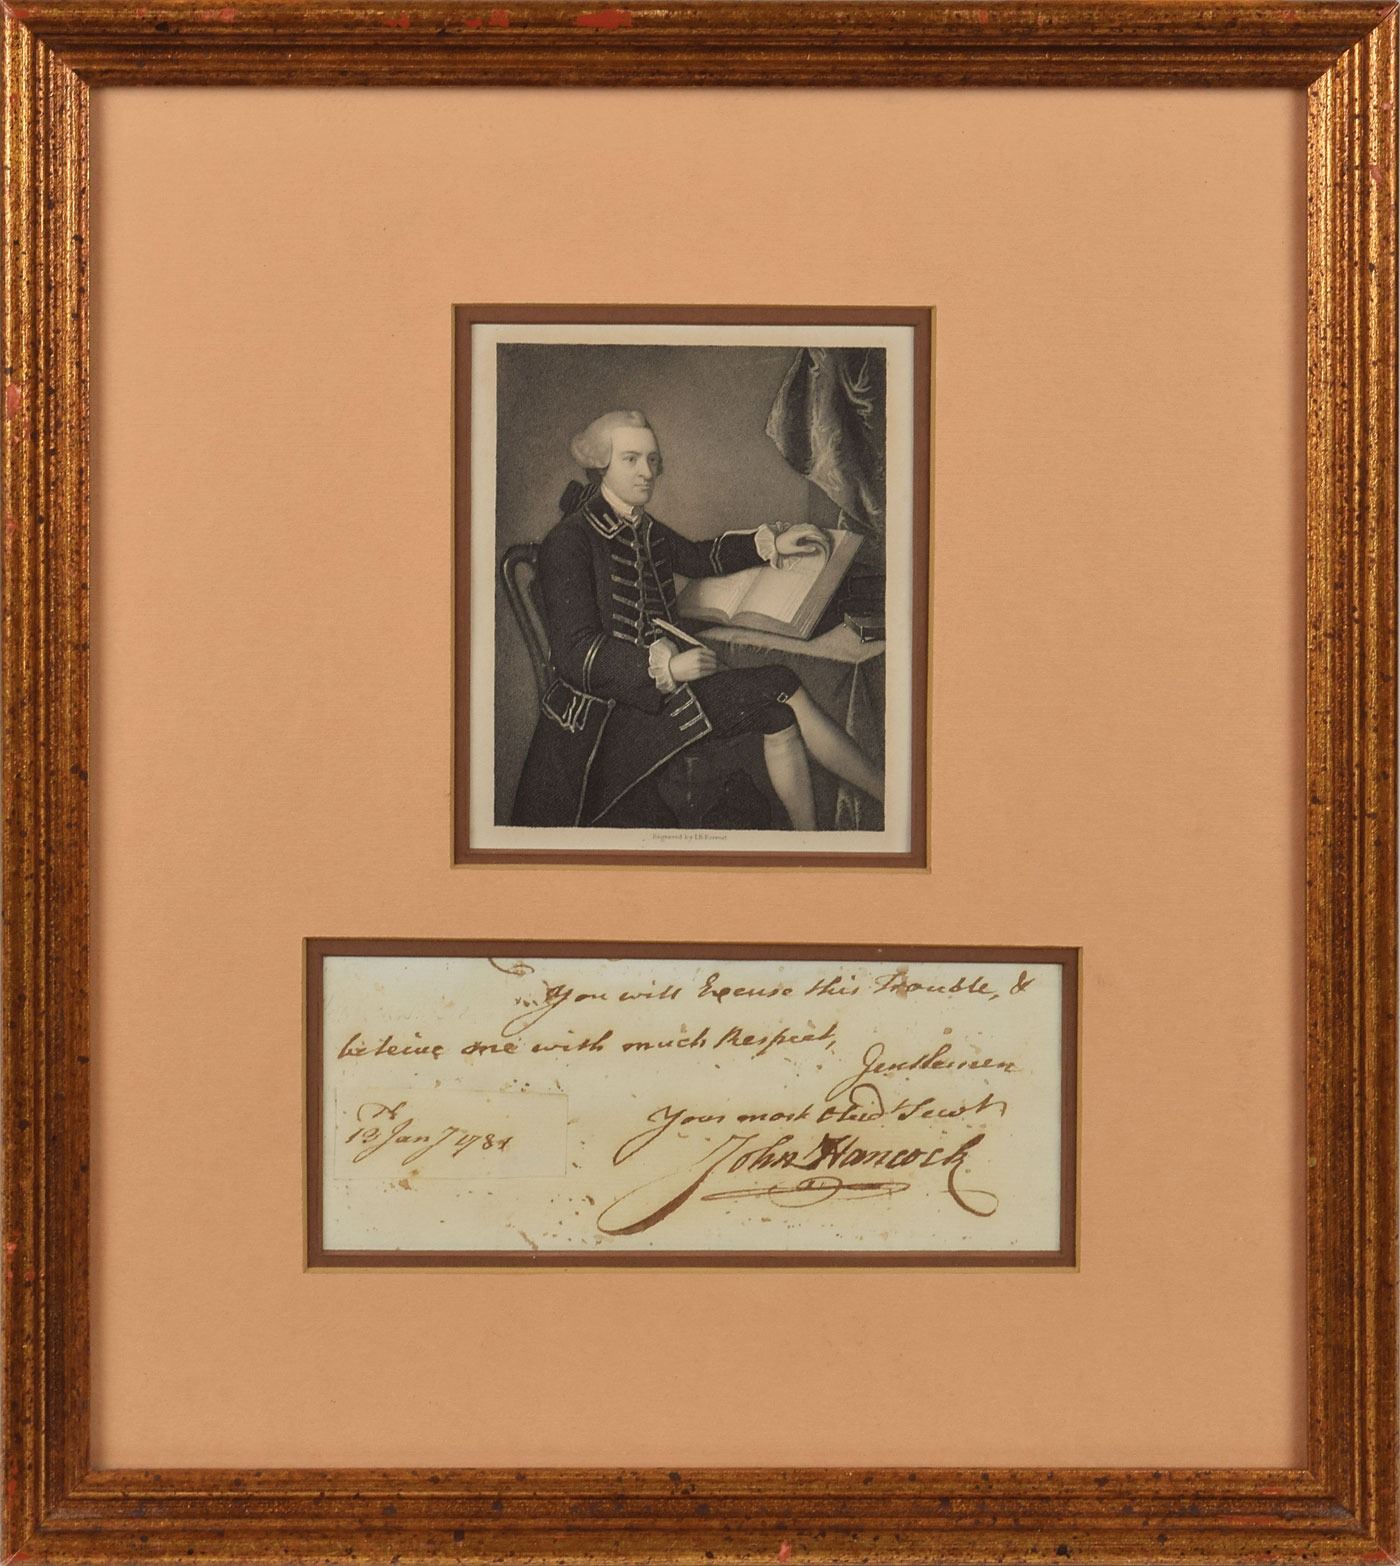 Engraved by I.B. Forrest
You will Excuse this Trouble, &
beleive me with much Respect,
Gentlemen
Your most Obed.t Serv.t
John Hancock
Jan.y 178